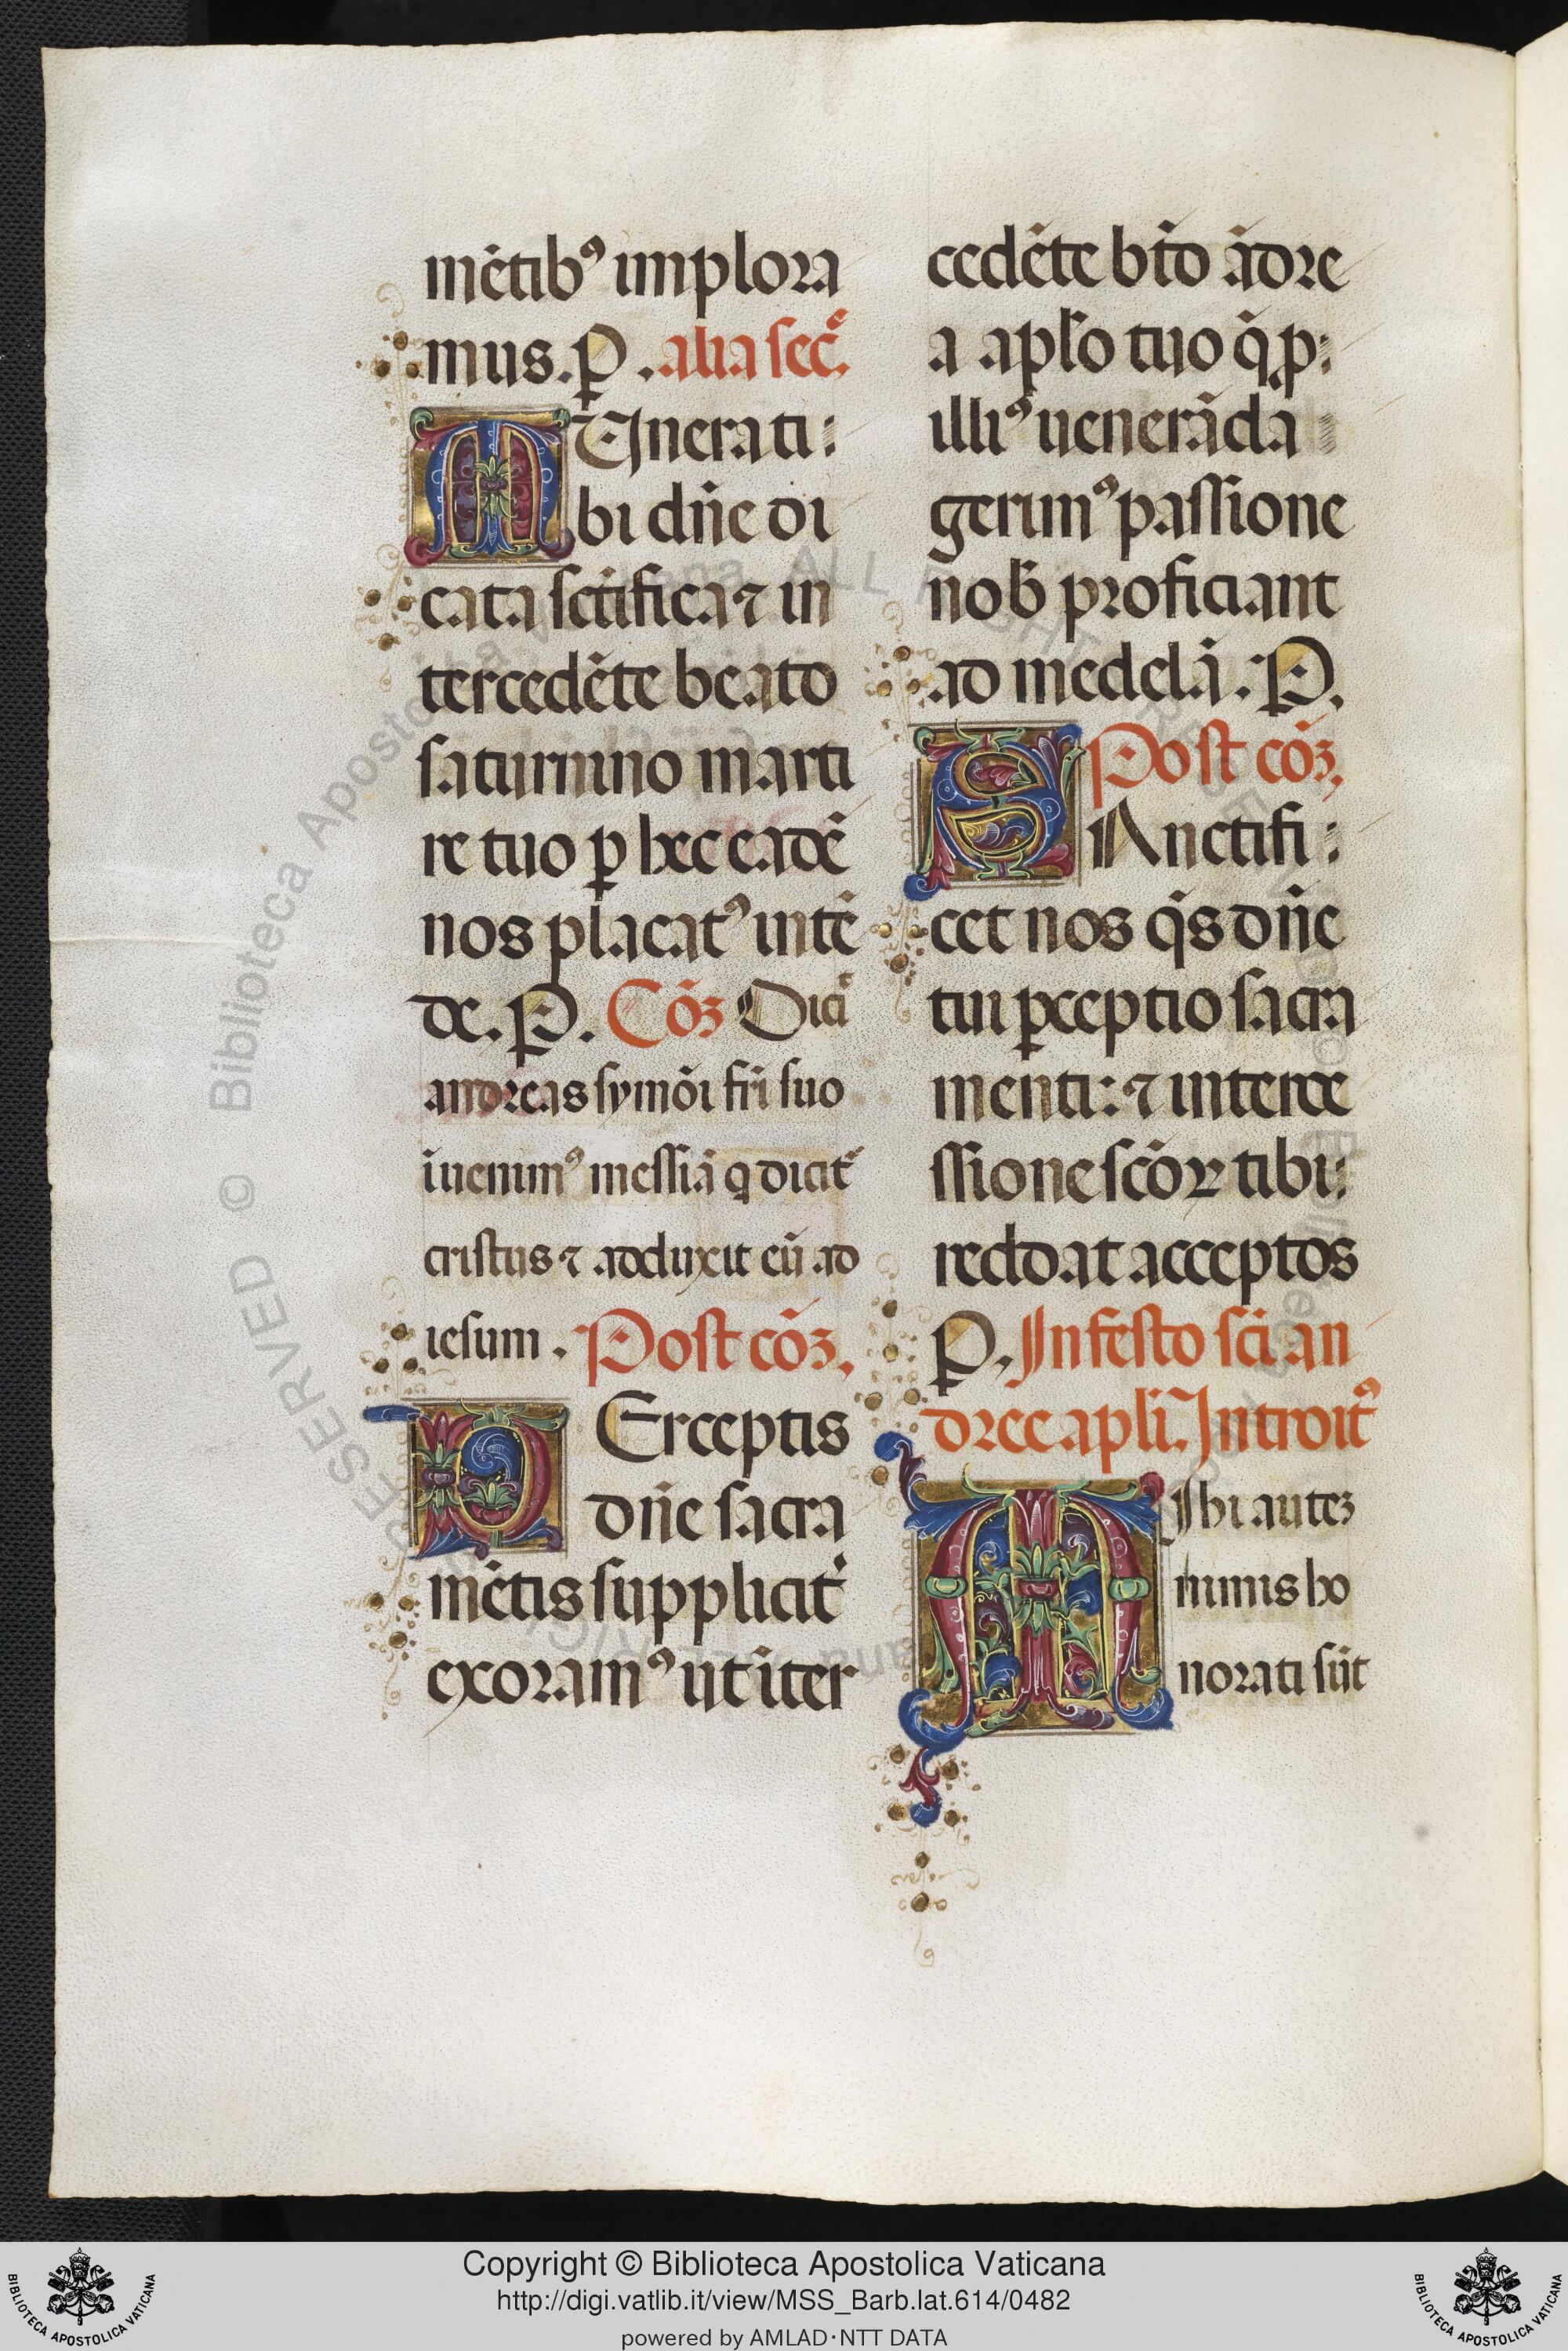 mētibꝰ implora
mus. P. alia sec̄.
MUnera ti:
bi dn̄e di
cata sc̄tifica ⁊ in
tercedēte beato
saturnino marti
re tuo ꝑ hec eadē
nos placatꝰ intē
de. P. Cōꝫ Dicit
andreas symōi fr̄i suo
īuenimꝰ messiā q̄ dicit᷑
cristus ⁊ adduxit eū ad
iesum. Post cōꝫ.
PErceptis
dn̄e sacra
mētis supplicit᷑
exoramꝰ ut īter
cedēte bt̄o ādre
a apl̄o tuo q̄ ꝓ:
illiꝰ uenerāda
gerimꝰ passione
nob̄ proficiant
ad medelā. P.
Post cōꝫ.
SAnctifi:
cet nos q̄s dn̄e
tui ꝑceptio sacra
menti: ⁊ interce
ssione sc̄oꝝ tibi:
reddat acceptos
P. In festo sc̄i an
dree apl̄i. Introitꝰ
MIhi auteꝫ
nimis ho
norati sūt
© Biblioteca Apostolica Vaticana ALL RIGHTS RESERVED
Copyright © Biblioteca Apostolica Vaticana
http://digi.vatlib.it/view/MSS_Barb.lat.614/0482
powered by AMLAD·NTT DATA
BIBLIOTECA APOSTOLICA VATICANA
BIBLIOTECA APOSTOLICA VATICANA